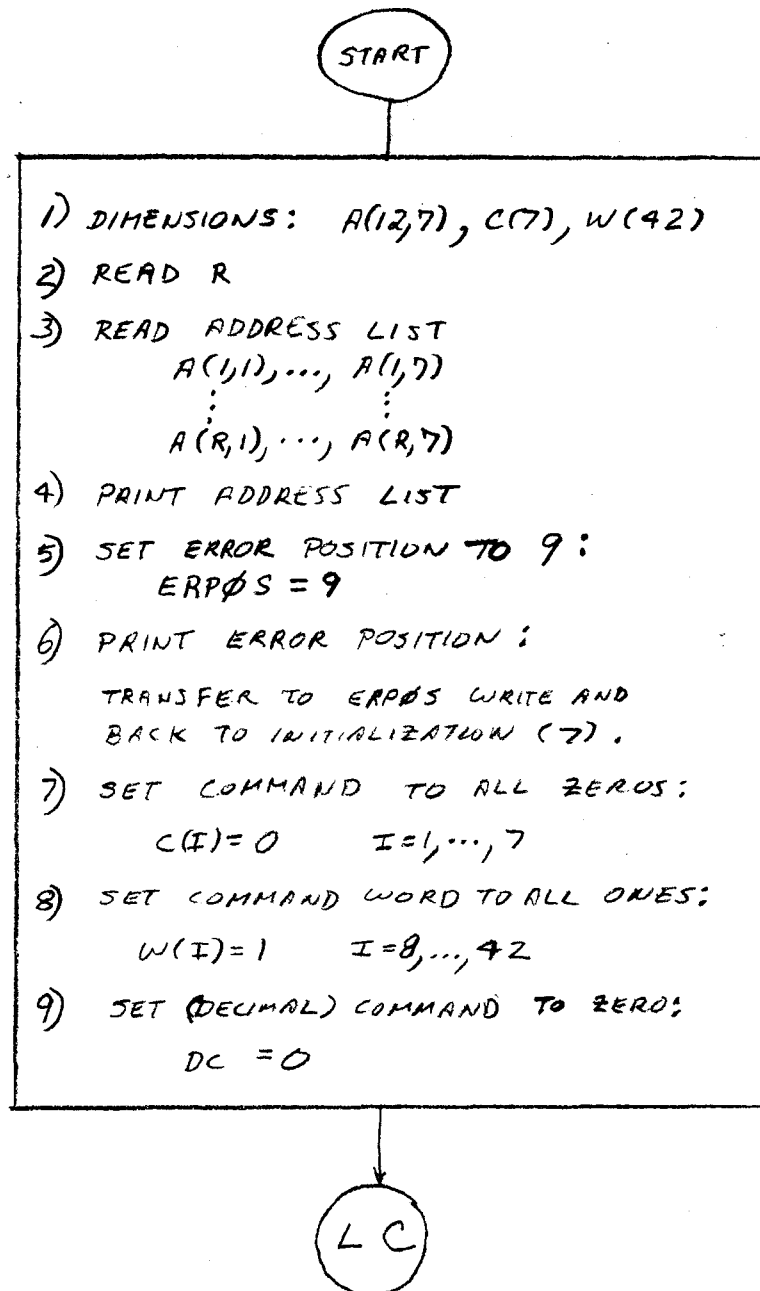 START
1) DIMENSIONS: A(12,7), C(7), W(42)
2) READ R
3) READ ADDRESS LIST
A(1,1),..., A(1,7)
⋮ ⋮
A(R,1),..., A(R,7)
4) PRINT ADDRESS LIST
5) SET ERROR POSITION TO 9:
ERPØS = 9
6) PRINT ERROR POSITION:
TRANSFER TO ERPØS WRITE AND
BACK TO INITIALIZATION (7).
7) SET COMMAND TO ALL ZEROS:
C(I)=0 I=1,...,7
8) SET COMMAND WORD TO ALL ONES:
W(I)=1 I=8,...,42
9) SET (DECIMAL) COMMAND TO ZERO:
DC =0
LC